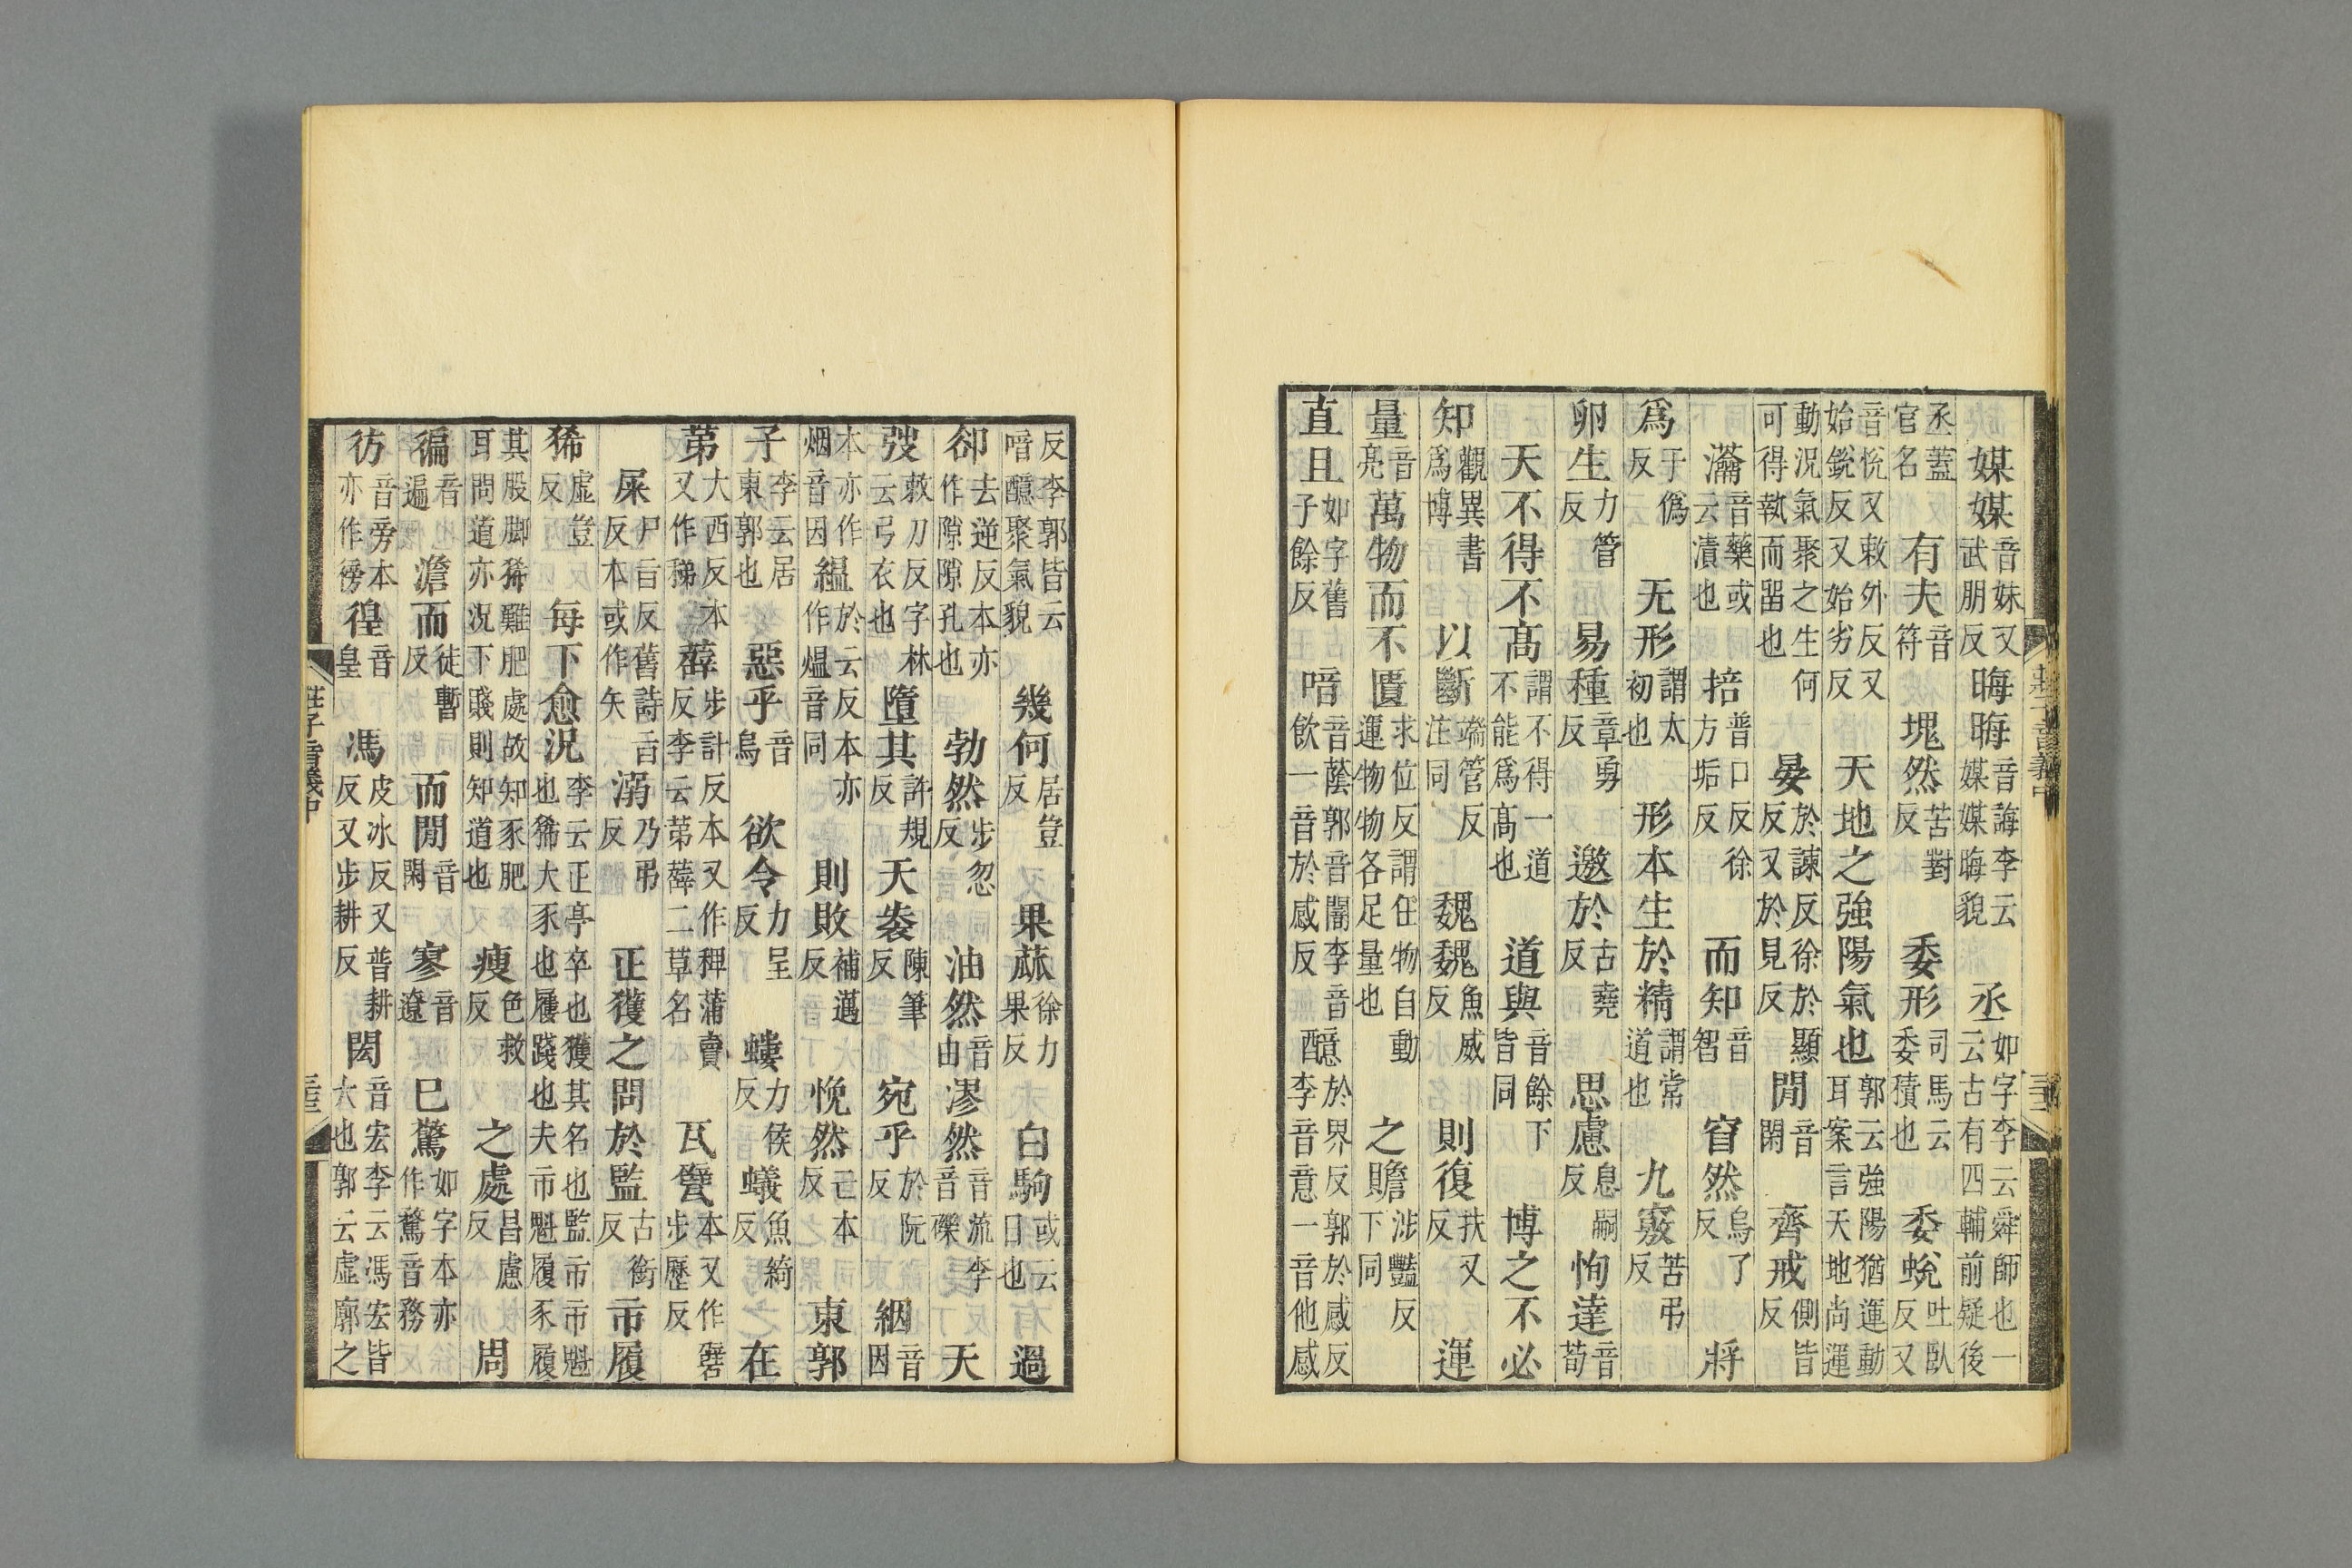 媒媒音妹又武朋反晦晦音誨李云媒媒晦貌丞如字李云舜師也一云古有四輔前疑後
丞蓋官名有夫音符塊然苦對反委形司馬云委積也委蛻吐臥反又
音悅又敕外反又始銳反又始劣反天地之強陽氣也郭云強陽猶運動耳案言天地尚運
動況氣聚之生何可得執而留也晏於諫反徐於顯反又於見反閒音閑齊戒側皆反
瀹音藥或云漬也掊普口反徐方垢反而知音智窅然烏了反將
爲于僞反无形謂太初也形本生於精謂常道也九竅苦弔反
卵生力管反易種章勇反邀於古堯反思慮息嗣反恂達音荀
天不得不高謂不得一道不能爲高也道與音餘下皆同博之不必
知觀異書爲博以斷端管反注同魏魏魚威反則復扶又反運
量音亮萬物而不匱求位反謂任物自動運物物各足量也之贍涉豔反下同
直且如字舊子餘反喑音蔭郭音闇李音飲一音於感反醷於界反郭於感反李音意一音他感反
莊子音義中
反李郭皆云喑醷聚氣貌幾何居豈反果蓏徐力果反白駒或云日也過
郤去逆反本亦作隙隙孔也勃然步忽反油然音由漻然音流李音礫天
弢敕刀反字林云弓衣也墮其許規反天袠陳筆反宛乎於阮反絪音因
本亦作烟音因縕於云反本亦作熅音同則敗補邁反悗然亡本反東郭
子李云居東郭也惡乎音烏欲令力呈反螻力侯反蟻魚綺反在
苐大西反本又作稊薜步計反本又作稗蒲賣反李云苐薜二草名瓦甓本又作礕步歷反
屎尸旨反舊詩旨反本或作矢溺乃弔反正獲之問於監古銜反市履
狶虛豈反每下愈況李云正亭卒也獲其名也監市市魁也狶大豕也履踐也夫市魁履豕履
其股脚狶難肥處故知豕肥耳問道亦況下賤則知道也瘦色救反之處昌慮反周
徧音遍澹而徒暫反而閒音閑寥音遼已驚如字本亦作騖音務
彷音旁本亦作徬徨音皇馮皮冰反又普耕反又步耕反閎音宏李云馮宏皆大也郭云虛廓之
莊子音義中